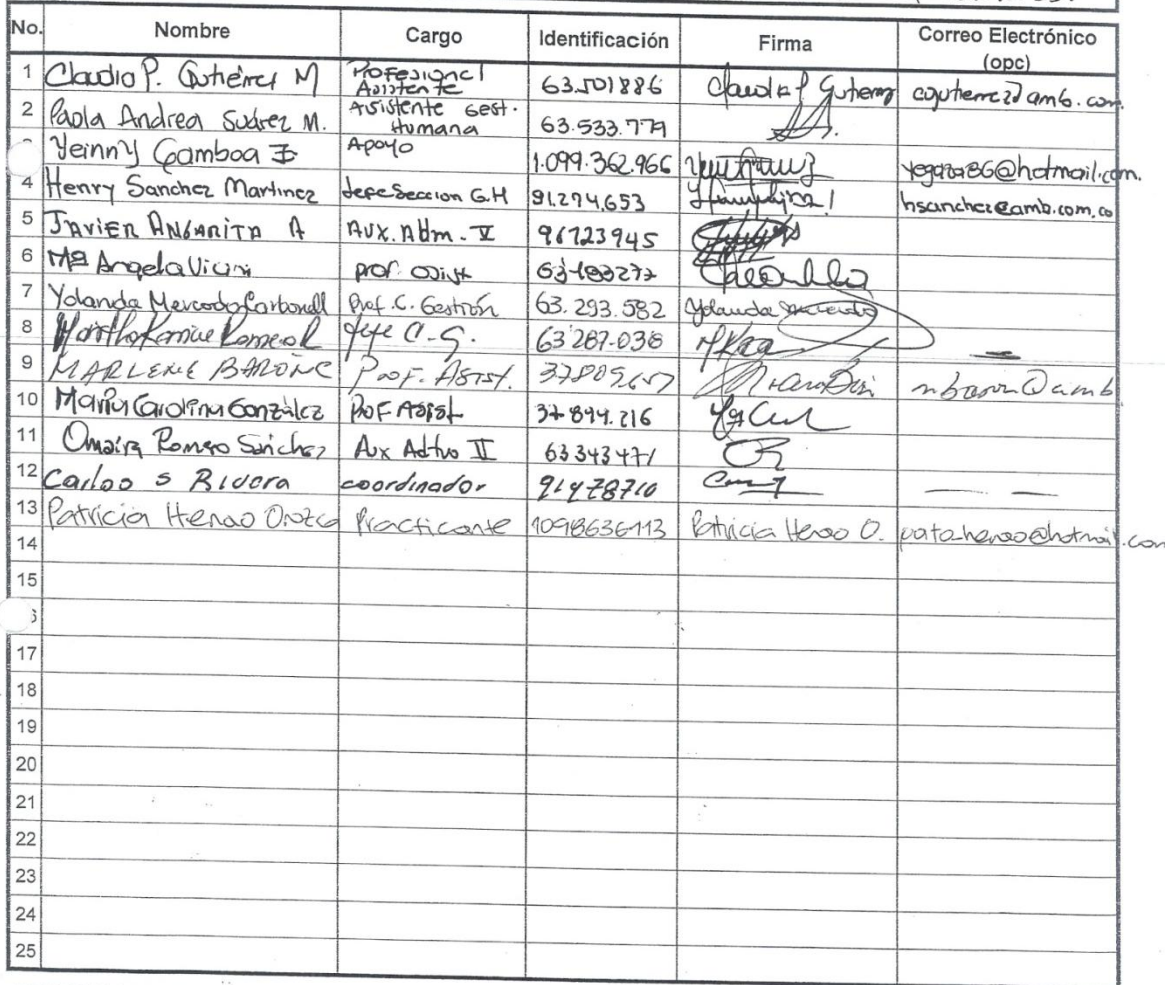 No. Nombre Cargo Identificación Firma Correo Electrónico (opc)
1 Claudia P. Gutiérrez M Profesional Asistente 63.501886 Claudia P Gutierrez cgutierrez@amb.com.
2 Paola Andrea Suárez M. Asistente Gest. Humana 63.533.779
Yeinny Gamboa Apoyo 1.099.362.966 @hotmail.com.
4 Henry Sanchez Martinez Jefe Seccion G.H 91.274.653 hsanchez@amb.com.co
5 JAVIER ANGARITA A AUX. Adm. II 96723945
6 Mª Angela Viviani prof. asist
7 Yolanda Mercado Carbonell Prof. C. Gestión 63.293.582 Yolanda
8 Romero R Jefe C.G. 63'287.038
9 MARLENE BARON C Prof. Asist.
10 María Carolina González Prof Asist 37894.216
11 Omaira Romero Sánchez Aux Adtvo II 63343471
12 Carlos S Rivera coordinador 91478710
13 Patricia Henao Orozco Practicante 1098636113 Patricia Henao O. pata_henao@hotmail.com
14
15
17
18
19
20
21
22
23
24
25